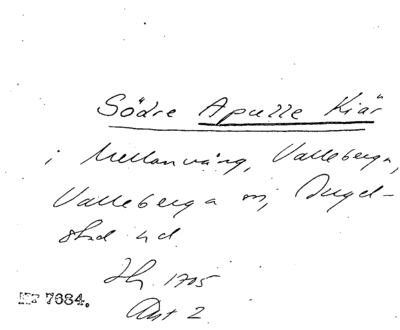 Södre Apulle Kiär
i Mellanvång, Valleberga,
Valleberga sn, Ingel-
stad hd.
Hg. 1705
Akt 2
NT 7684.